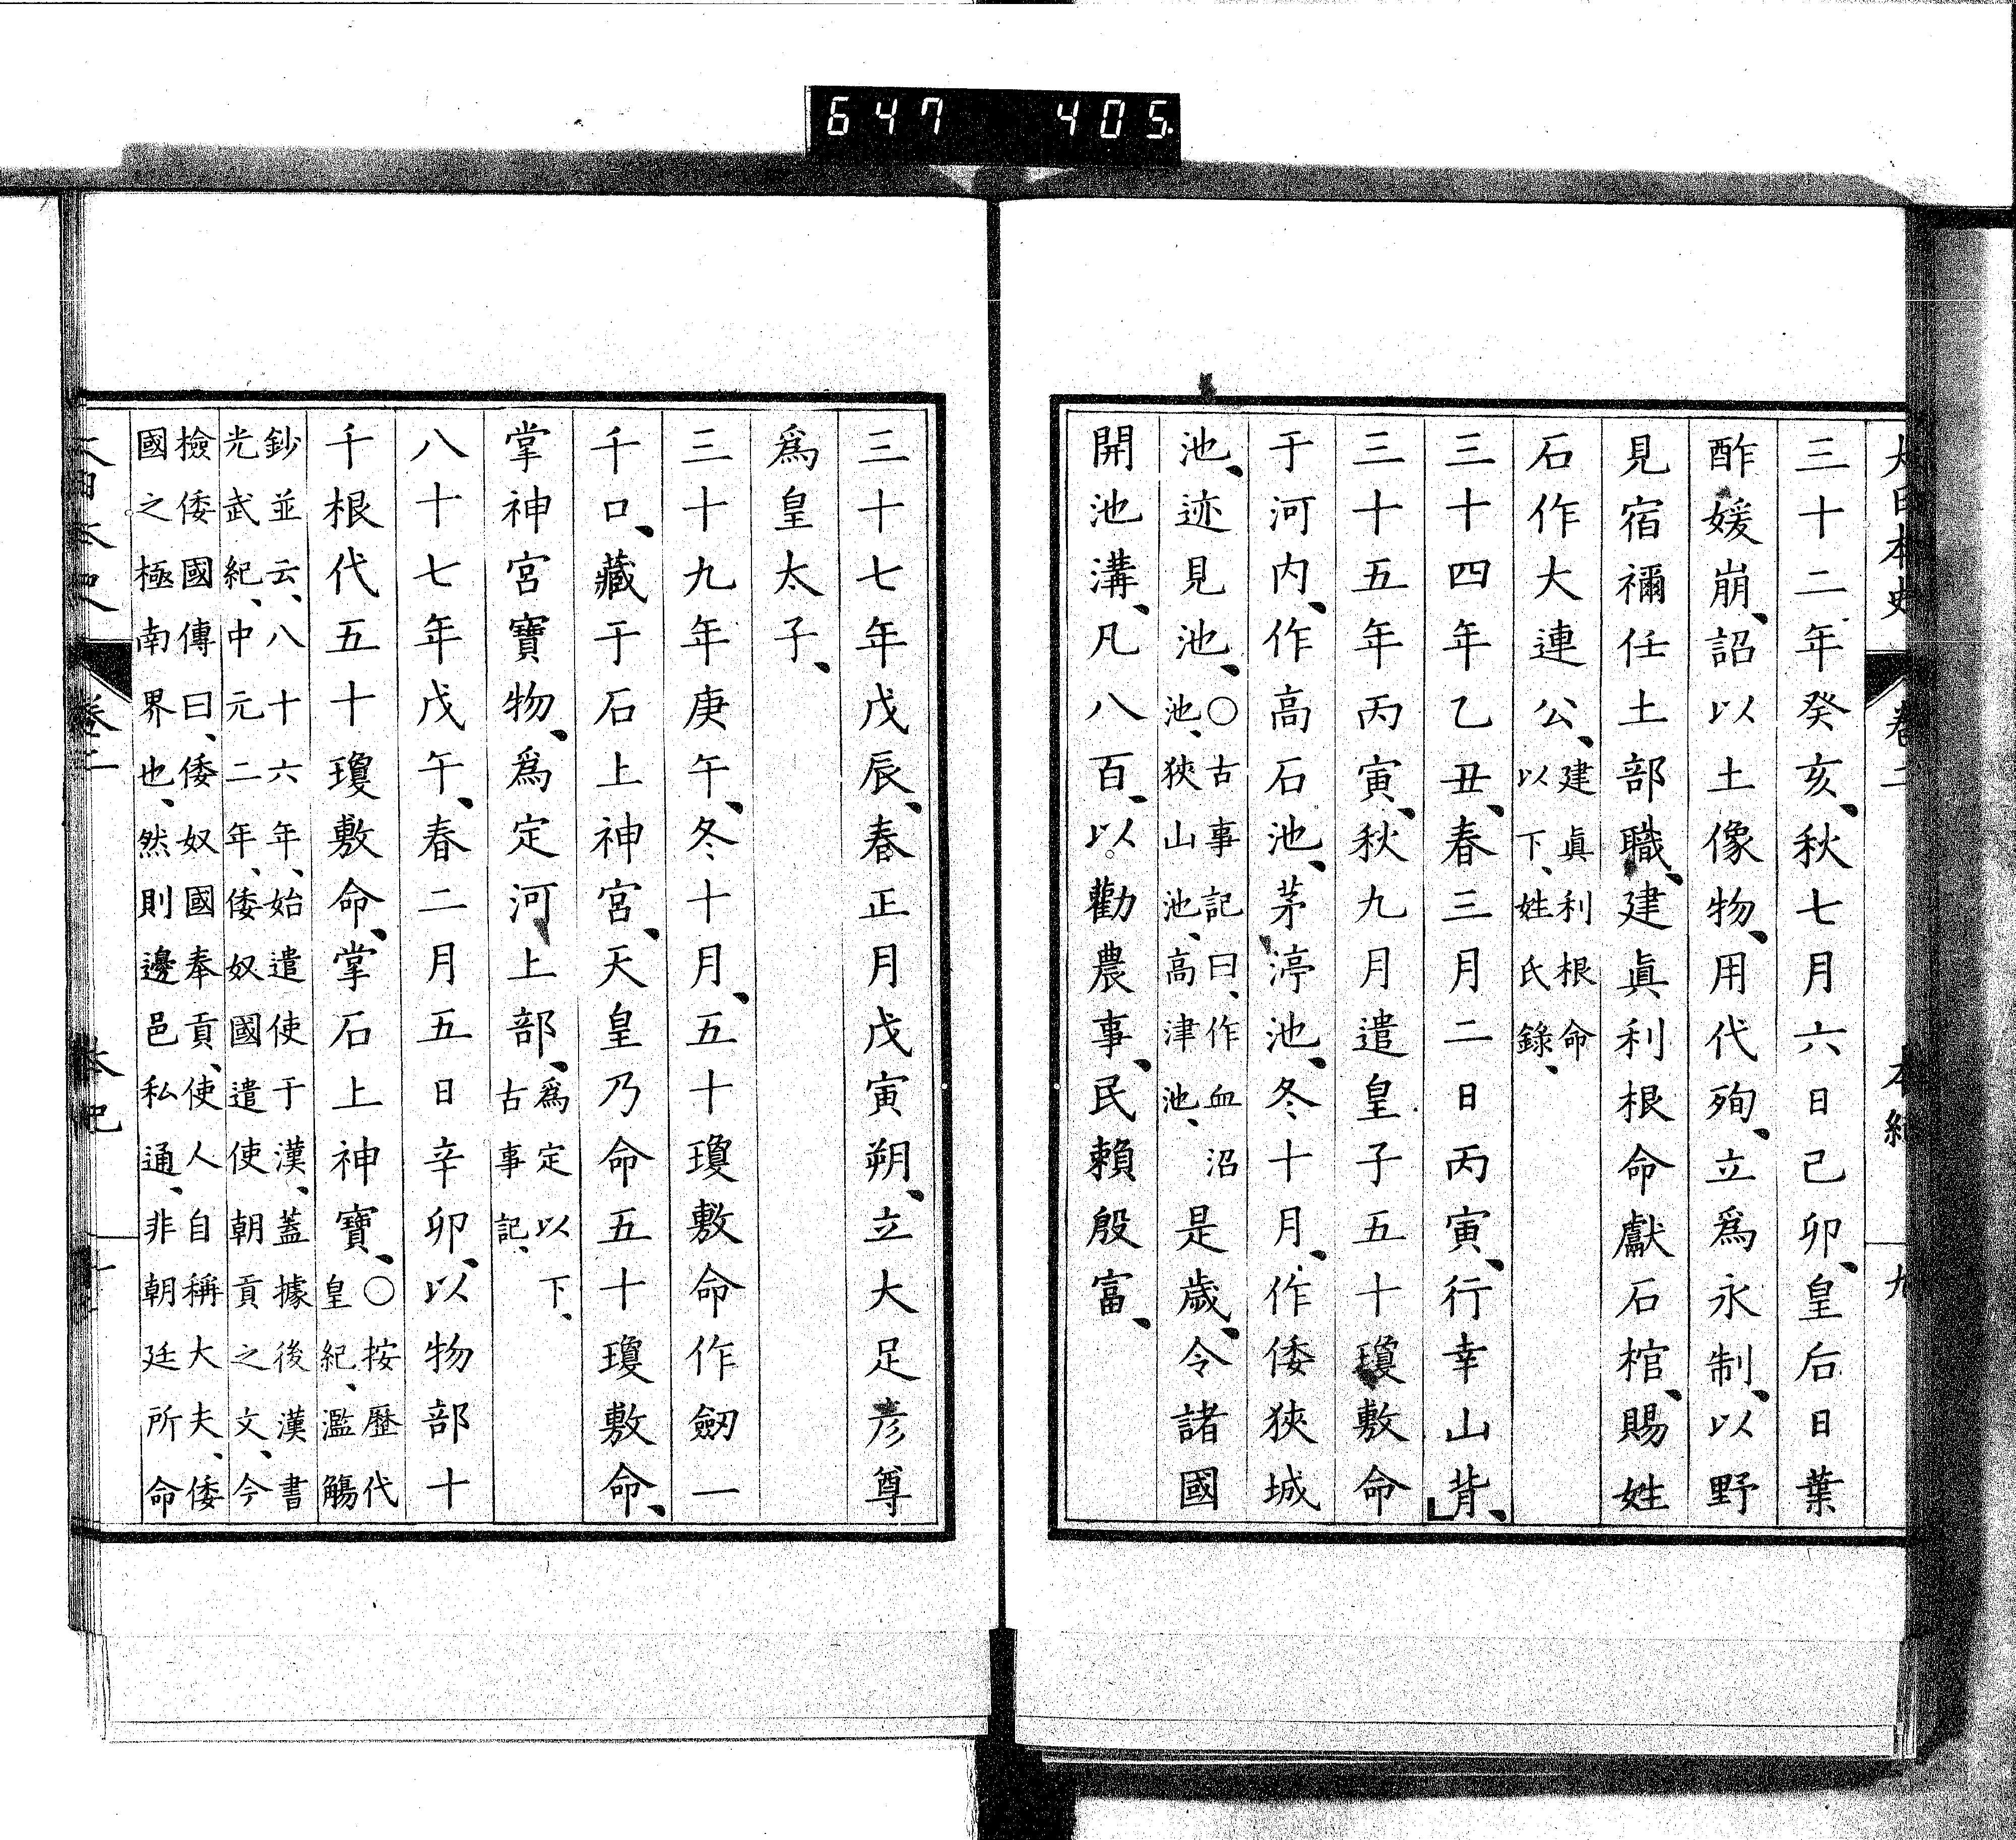 647 405
大日本史 卷二 本紀 九
三十二年癸亥、秋七月六日己卯、皇后日葉
酢媛崩、詔以土像物、用代殉、立爲永制、以野
見宿禰任土部職、建眞利根命獻石棺、賜姓
石作大連公、建眞利根命以下、姓氏錄、
三十四年乙丑、春三月二日丙寅、行幸山背、
三十五年丙寅、秋九月遣皇子五十瓊敷命
于河内、作高石池、茅渟池、冬十月、作倭狹城
池、迹見池、○古事記曰、作血沼池、狹山池、高津池、是歲、令諸國
開池溝、凡八百、以勸農事、民賴殷富、
三十七年戊辰、春正月戊寅朔、立大足彦尊
爲皇太子、
三十九年庚午、冬十月、五十瓊敷命作劒一
千口、藏于石上神宮、天皇乃命五十瓊敷命、
掌神宮寶物、爲定河上部、爲定以下、古事記、
八十七年戊午、春二月五日辛卯、以物部十
千根代五十瓊敷命、掌石上神寶、○按歷代皇紀、濫觴
鈔並云、八十六年、始遣使于漢、蓋據後漢書
光武紀、中元二年、倭奴國遣使朝貢之文、今
檢倭國傳曰、倭奴國奉貢、使人自稱大夫、倭
國之極南界也、然則邊邑私通、非朝廷所命
大日本史 卷二 本紀